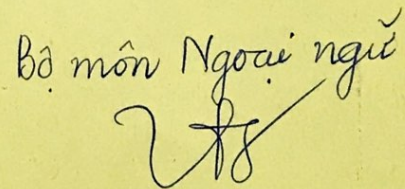 Bộ môn Ngoại ngữ